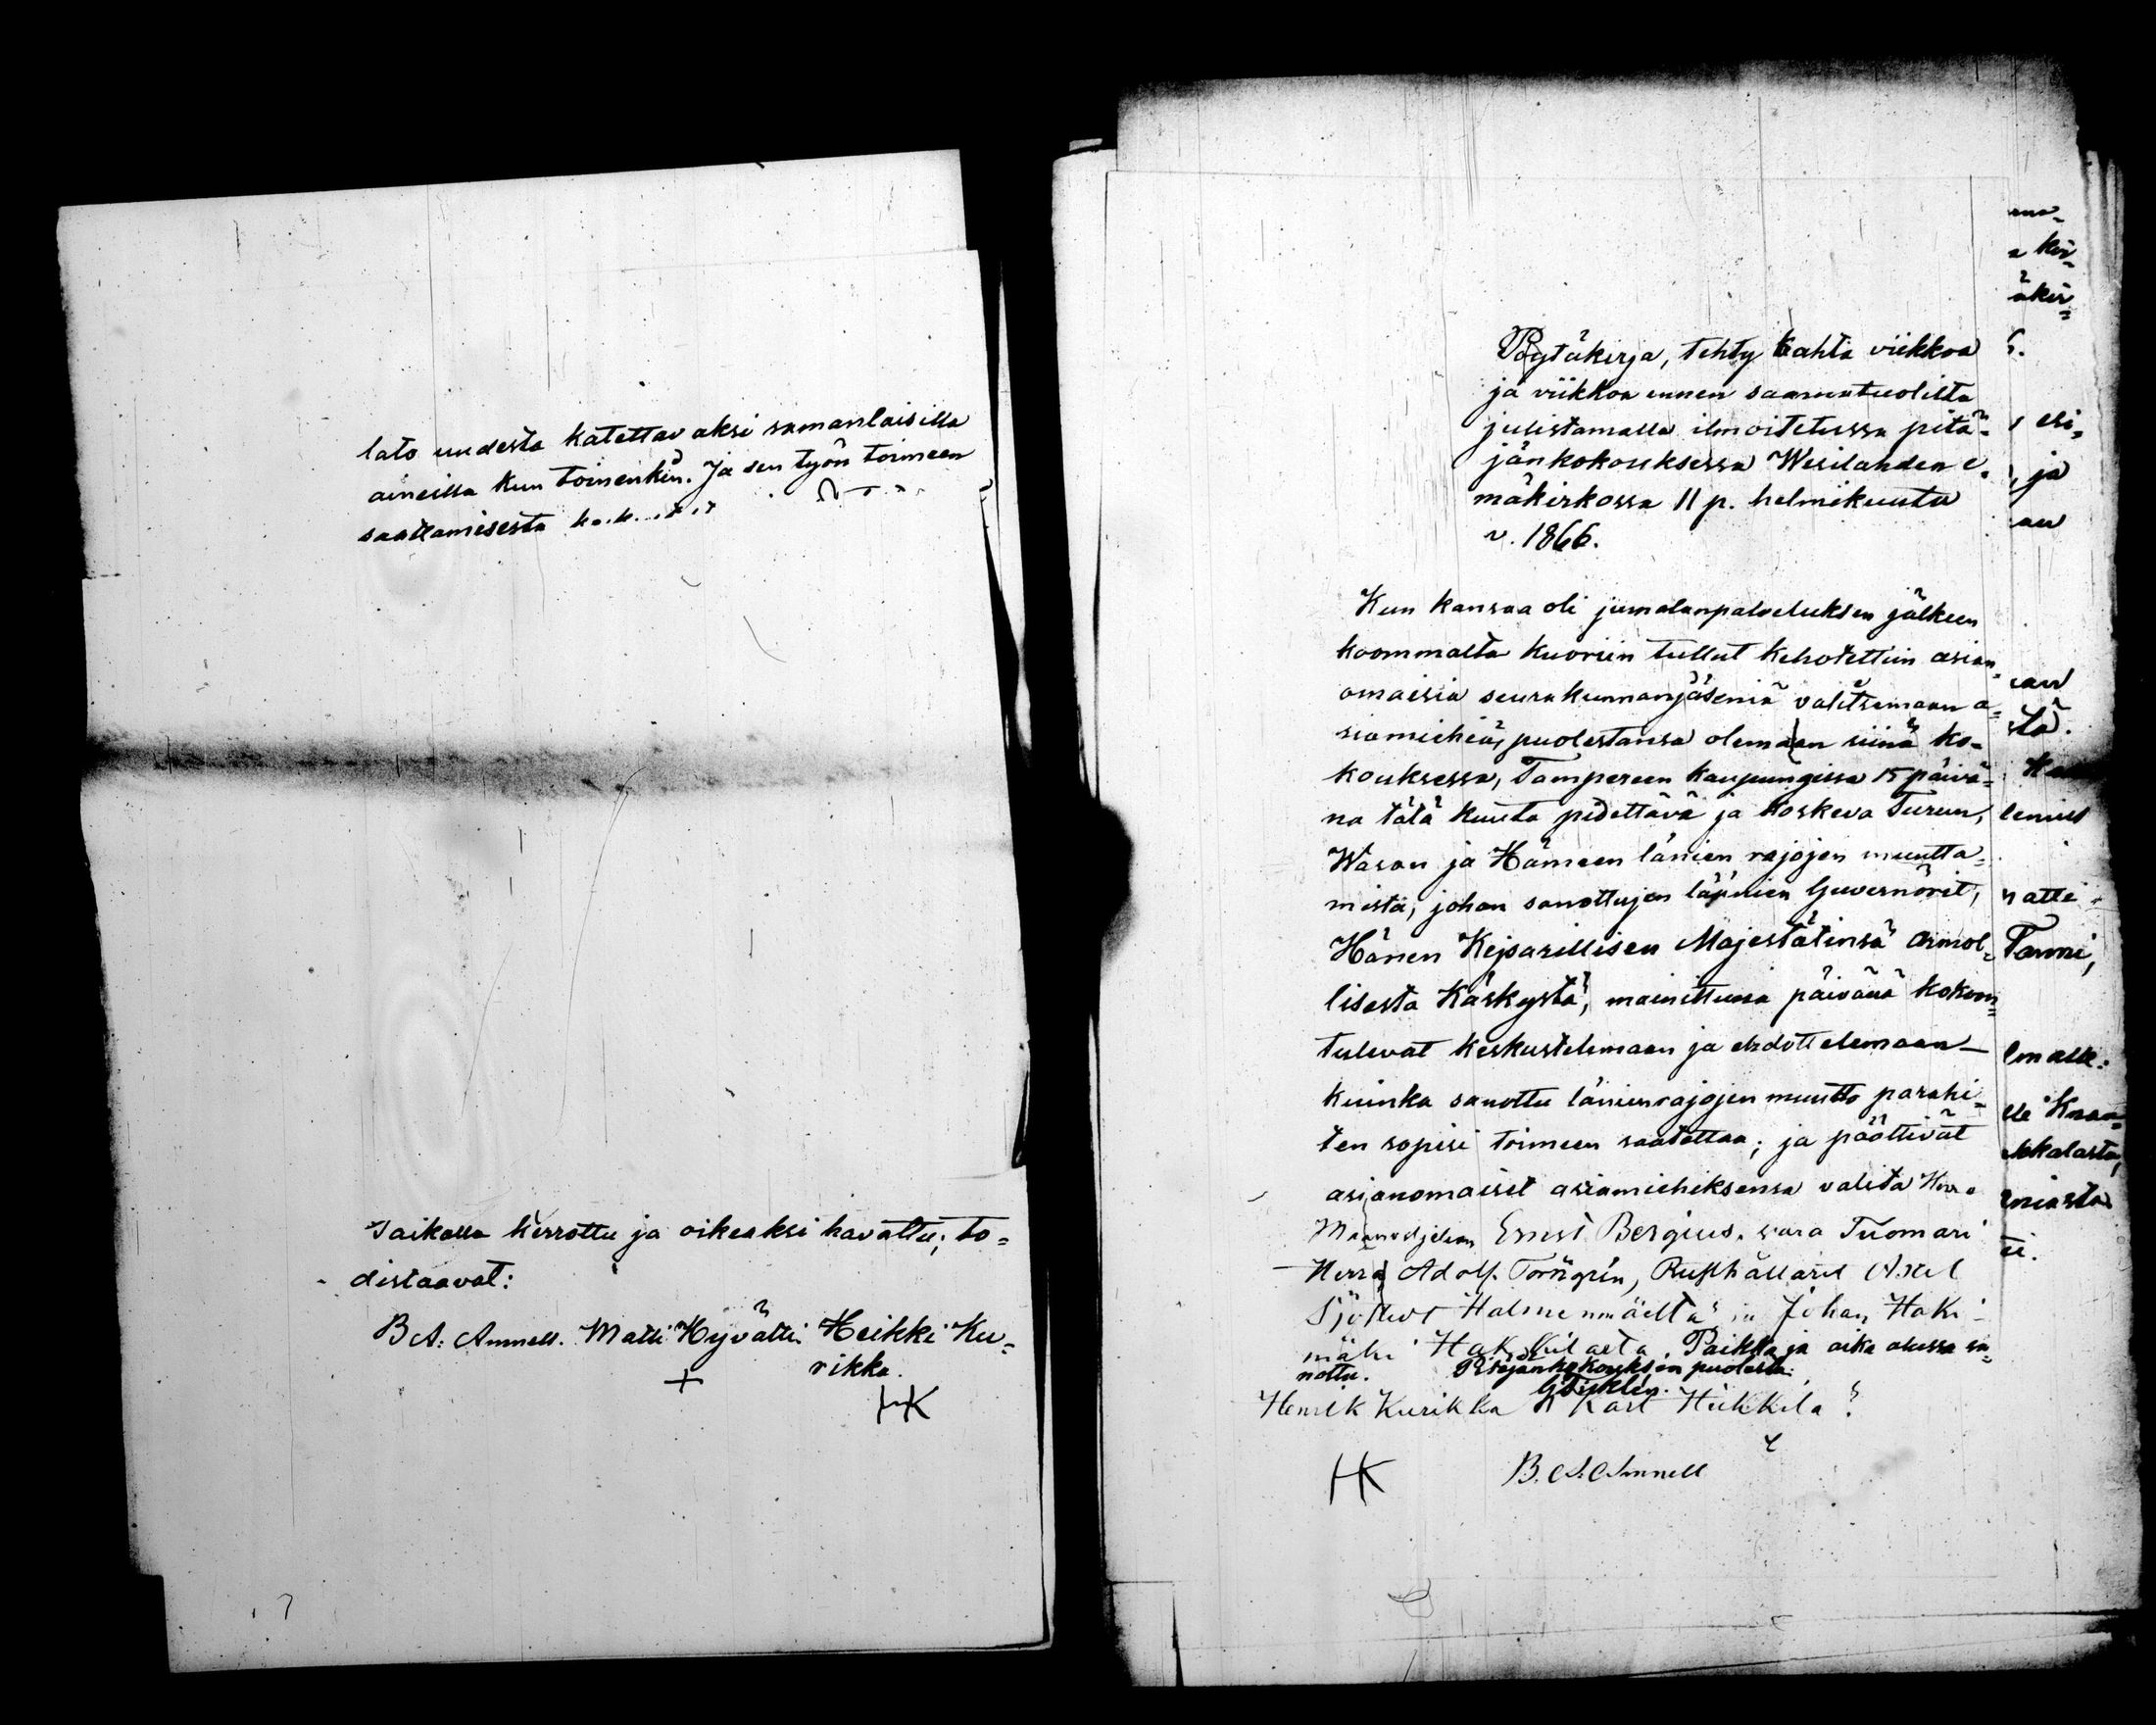 lato uudesta katettavaksi samanlaisilla
aineilla kun toinenkin. Ja sen työn toimeen
saattamisesta
Paikalla kerrottu ja oikeaksi havaittu; to=
distaavat:
B A: Annell. Matti Hyvätti Heikki Ku=
rikka.
HK
Pöytäkirja, tehty kahta viikkoa
ja viikkoa ennen saarnatuolilta
julistamalla ilmoitetussa pitä=
jänkokouksessa Wesilahden e=
mäkirkossa 11 p. helmikuuta
v. 1866.
Kun kansaa oli jumalanpalveluksen jälkeen
koommalta kuoriin tullut kehotettiin asian=
omaisia seurakunnanjäseniä valitsemaan a=
siamiehiä, puolestansa olemaan siinä ko=
kouksessa, Tampereen kaupungissa 15 päivä=
nä tätä kuuta pidettävä ja koskeva Turun,
Wasan ja Hämeen läänien rajojen muutta=
mista, johon sanottujen läänien Guvernörit,
Hänen Kejsarillisen Majestätinsä Armol=
lisesta Käskystä, mainittuna päivänä kokoon=
tulevat keskustelemaan ja ehdottelemaan—
kuinka sanottu läänienrajojen muutto parahi=
ten sopisi toimeen saatettaa; ja päättivät
asianomaiset asiamiehiksensa valita Herra
Ernst Bergius, vara Tuomari
Herra Adolf Törngrén, Rusthållarit Axel
Halmeenmäeltä ja Johan Haki=
mäki Hakkilasta. Paikka ja aika alussa sa=
nottu. Pitäjänkokouksen puolesta:
Henrik Kurikka Karl Heikkilä
HK B. A. Annell
kir=
äkir=
esi=
ja
Tammi,